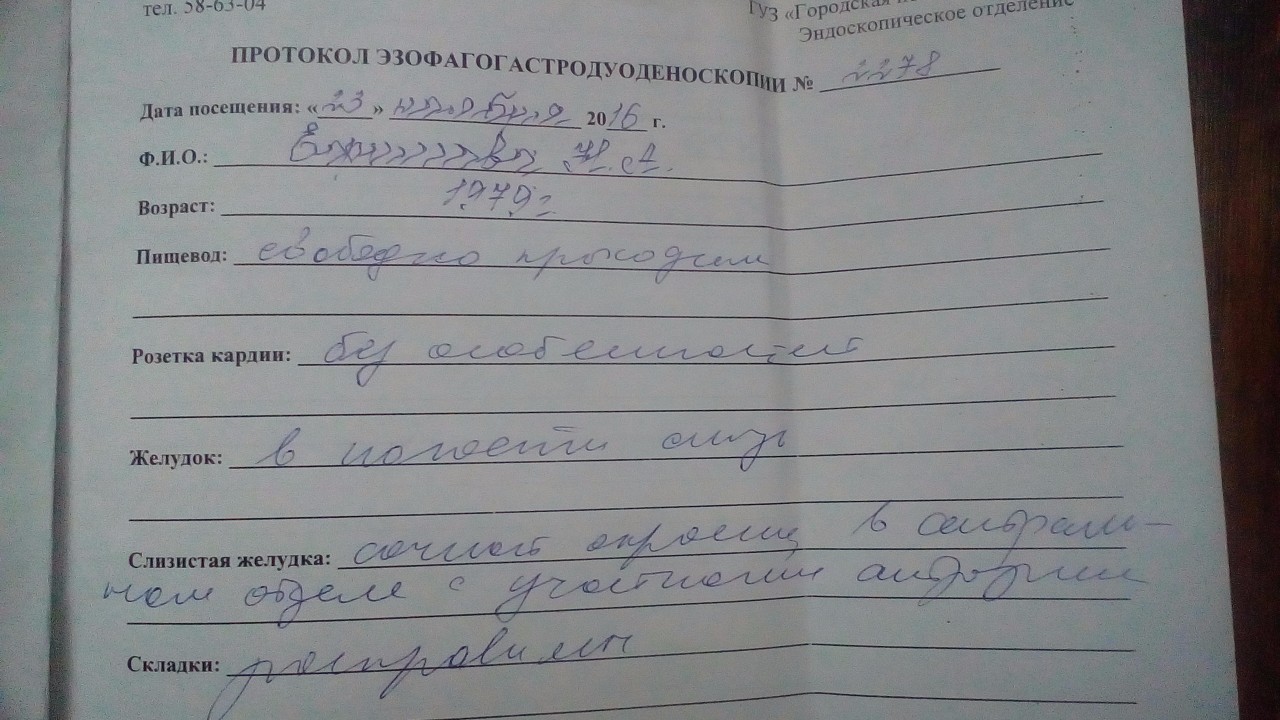 тел. 58-63-04
ГУЗ «Городская
Эндоскопическое отделение
ПРОТОКОЛ ЭЗОФАГОГАСТРОДУОДЕНОСКОПИИ № 2278
Дата посещения: «23» ноября 2016 г.
Ф.И.О.: Н.А.
Возраст: 1979г
Пищевод: свободно проходим
Розетка кардии: без особенностей
Желудок: в полости слизь
Слизистая желудка: сочной окраски, в антраль-
ном отделе с участками атрофии
Складки: расправимы